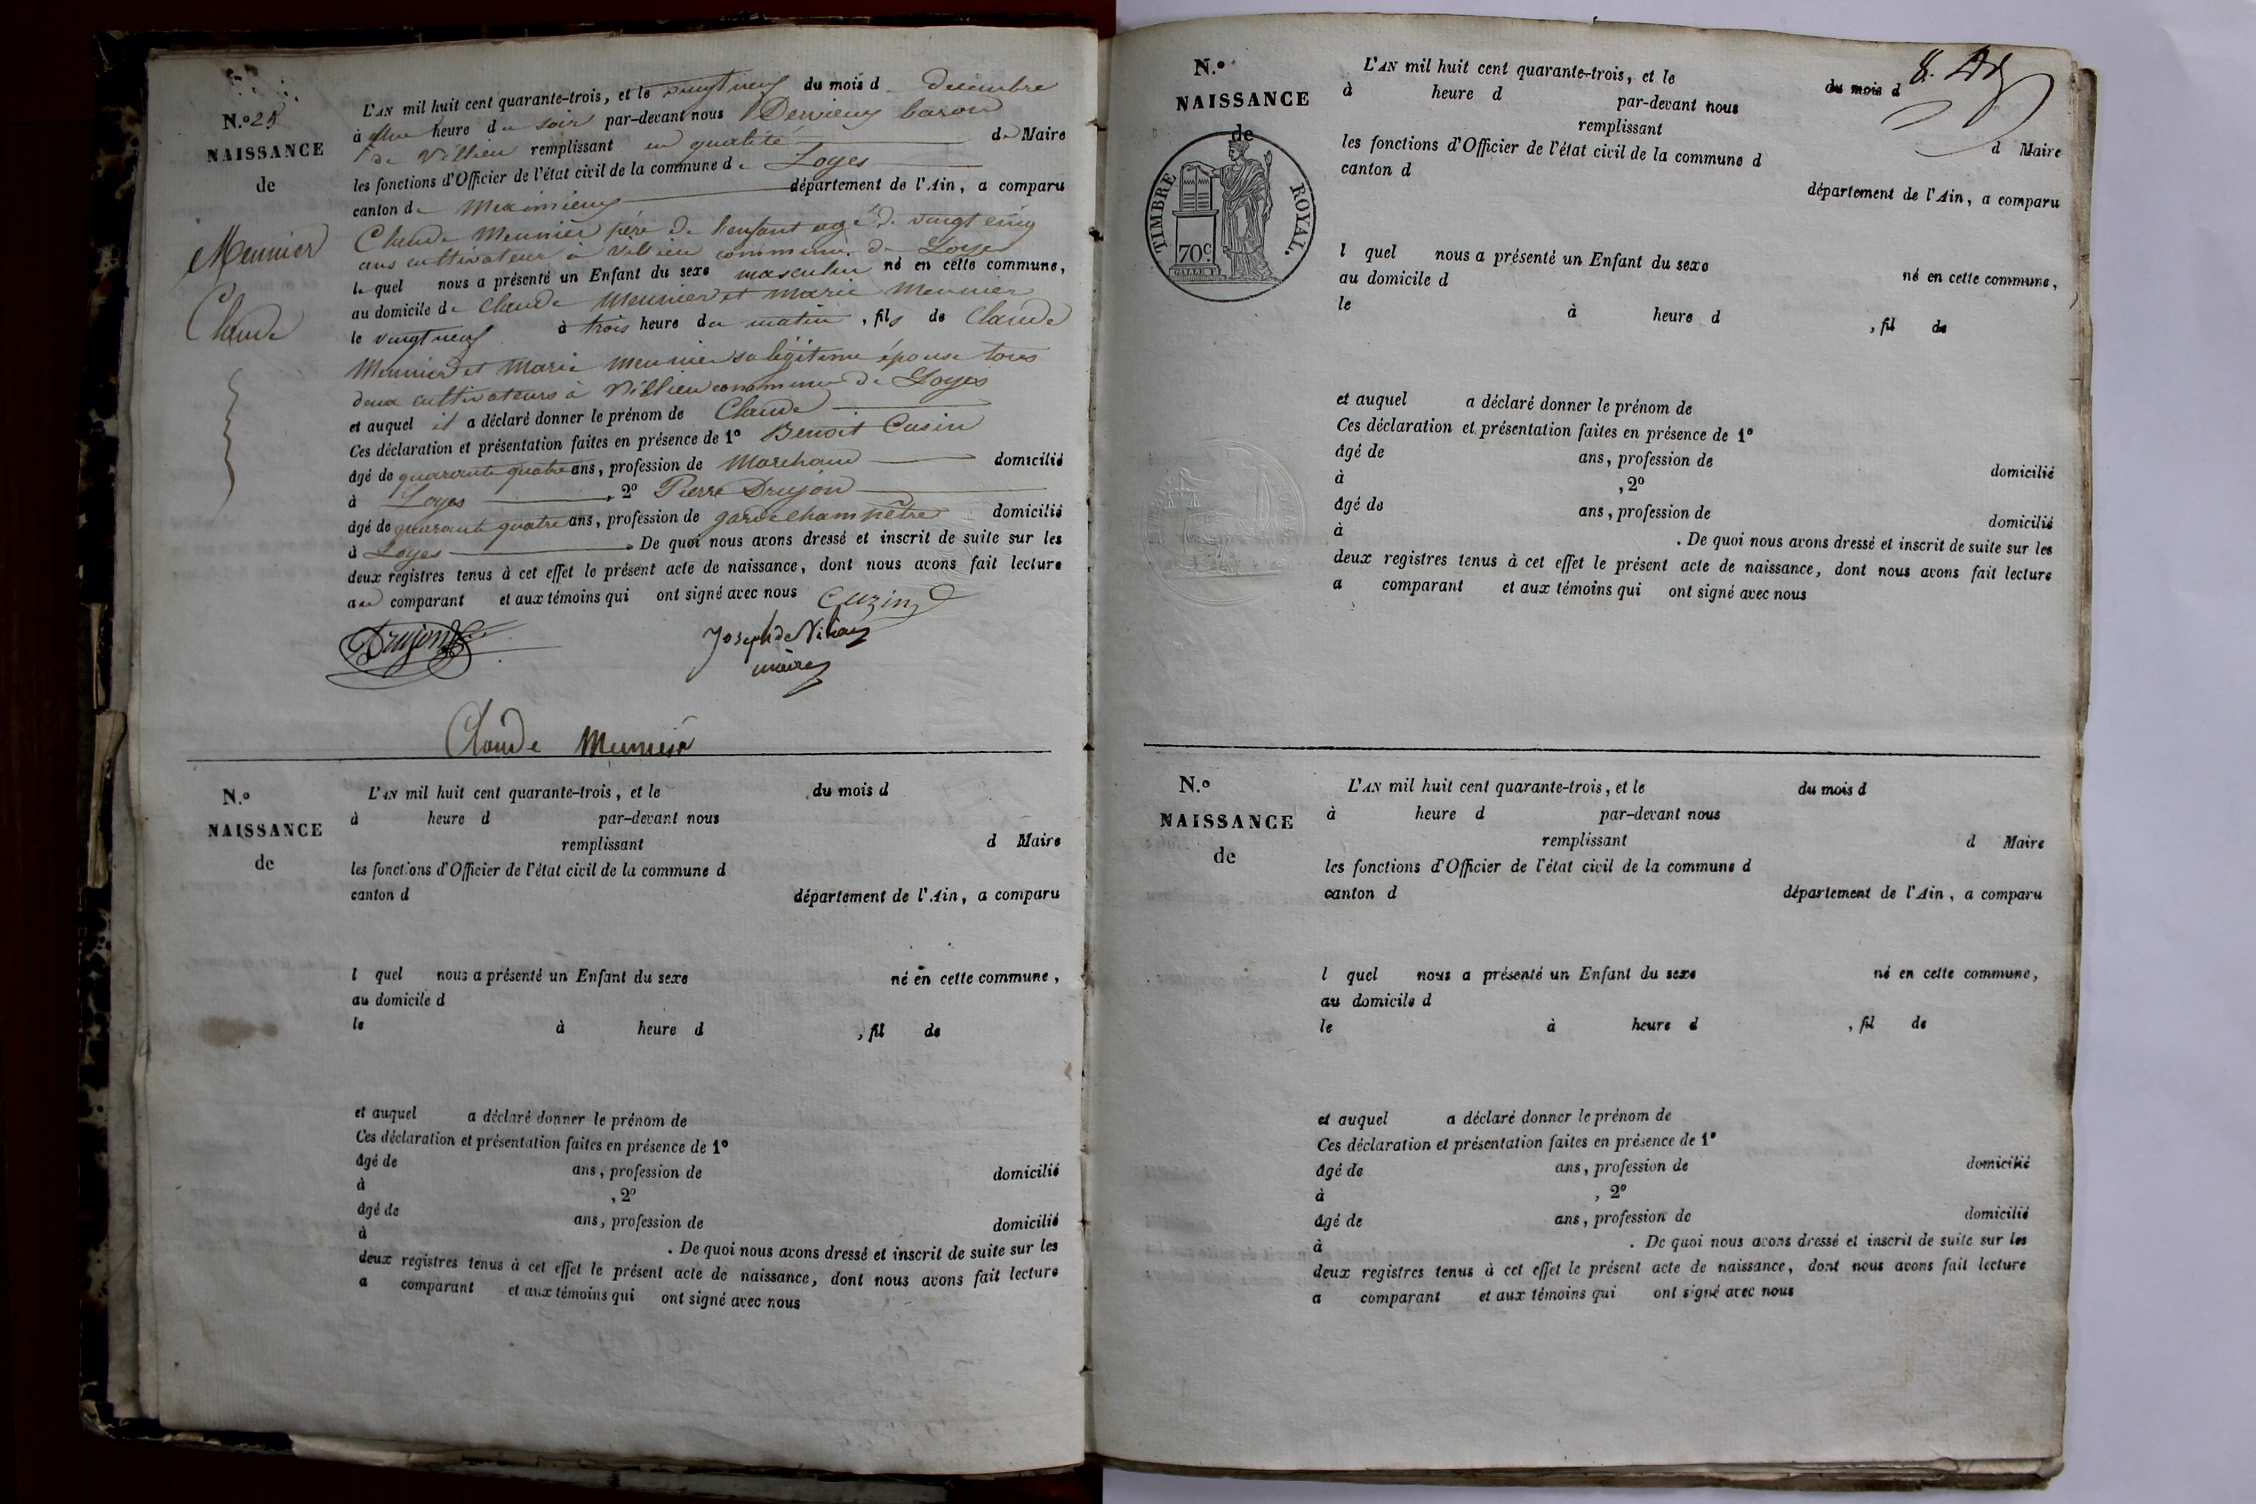 N.º 25
NAISSANCE
de
Meunier
Claude
L'AN mil huit cent quarante-trois, et le vingt neuf du mois de decembre
à une heure du soir par-devant nous Dervieux baron
de Villieu remplissant en qualité de Maire
les fonctions d'Officier de l'état civil de la commune de Loyes
canton de Meximieux département de l'Ain, a comparu
Claude Meunier père de l'enfant agé de vingt cinq
ans cultivateur à Villieu commune de Loyes
le quel nous a présenté un Enfant du sexe masculin né en cette commune,
au domicile de Claude Meunier et Marie Meunier
le vingt neuf à trois heure du matin, fils de Claude
Meunier et Marie Meunier sa légitime épouse tous
deux cultivateurs à Villieu commune de Loyes
et auquel il a déclaré donner le prénom de Claude
Ces déclaration et présentation faites en présence de 1º Benoit Cusin
âgé de quarante quatre ans, profession de Marchand domicilié
à Loyes, 2º Pierre Drujon
âgé de quarante quatre ans, profession de garde champêtre domicilié
à Loyes. De quoi nous avons dressé et inscrit de suite sur les
deux registres tenus à cet effet le présent acte de naissance, dont nous avons fait lecture
au comparant et aux témoins qui ont signé avec nous Cuzin
Drujon
Joseph de
maire
Claude Meunier
N.º
NAISSANCE
de
L'AN mil huit cent quarante-trois, et le du mois d
à heure d par-devant nous
remplissant d Maire
les fonctions d'Officier de l'état civil de la commune d
canton d département de l'Ain, a comparu
l quel nous a présenté un Enfant du sexe né en cette commune,
au domicile d
le à heure d , fil de
et auquel a déclaré donner le prénom de
Ces déclaration et présentation faites en présence de 1º
âgé de ans, profession de domicilié
à , 2º
âgé de ans, profession de domicilié
à . De quoi nous avons dressé et inscrit de suite sur les
deux registres tenus à cet effet le présent acte de naissance, dont nous avons fait lecture
a comparant et aux témoins qui ont signé avec nous
8.
N.º
NAISSANCE
de
TIMBRE ROYAL.
70c
L'AN mil huit cent quarante-trois, et le du mois d
à heure d par-devant nous
remplissant d Maire
les fonctions d'Officier de l'état civil de la commune d
canton d département de l'Ain, a comparu
l quel nous a présenté un Enfant du sexe né en cette commune,
au domicile d
le à heure d , fil de
et auquel a déclaré donner le prénom de
Ces déclaration et présentation faites en présence de 1º
âgé de ans, profession de domicilié
à , 2º
âgé de ans, profession de domicilié
à . De quoi nous avons dressé et inscrit de suite sur les
deux registres tenus à cet effet le présent acte de naissance, dont nous avons fait lecture
a comparant et aux témoins qui ont signé avec nous
N.º
NAISSANCE
de
L'AN mil huit cent quarante-trois, et le du mois d
à heure d par-devant nous
remplissant d Maire
les fonctions d'Officier de l'état civil de la commune d
canton d département de l'Ain, a comparu
l quel nous a présenté un Enfant du sexe né en cette commune,
au domicile d
le à heure d , fil de
et auquel a déclaré donner le prénom de
Ces déclaration et présentation faites en présence de 1º
âgé de ans, profession de domicilié
à , 2º
âgé de ans, profession de domicilié
à . De quoi nous avons dressé et inscrit de suite sur les
deux registres tenus à cet effet le présent acte de naissance, dont nous avons fait lecture
a comparant et aux témoins qui ont signé avec nous